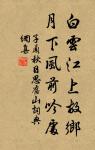 白雲江上故鄉
月下風前吟處
子肅秋日思廬山詞典
網集